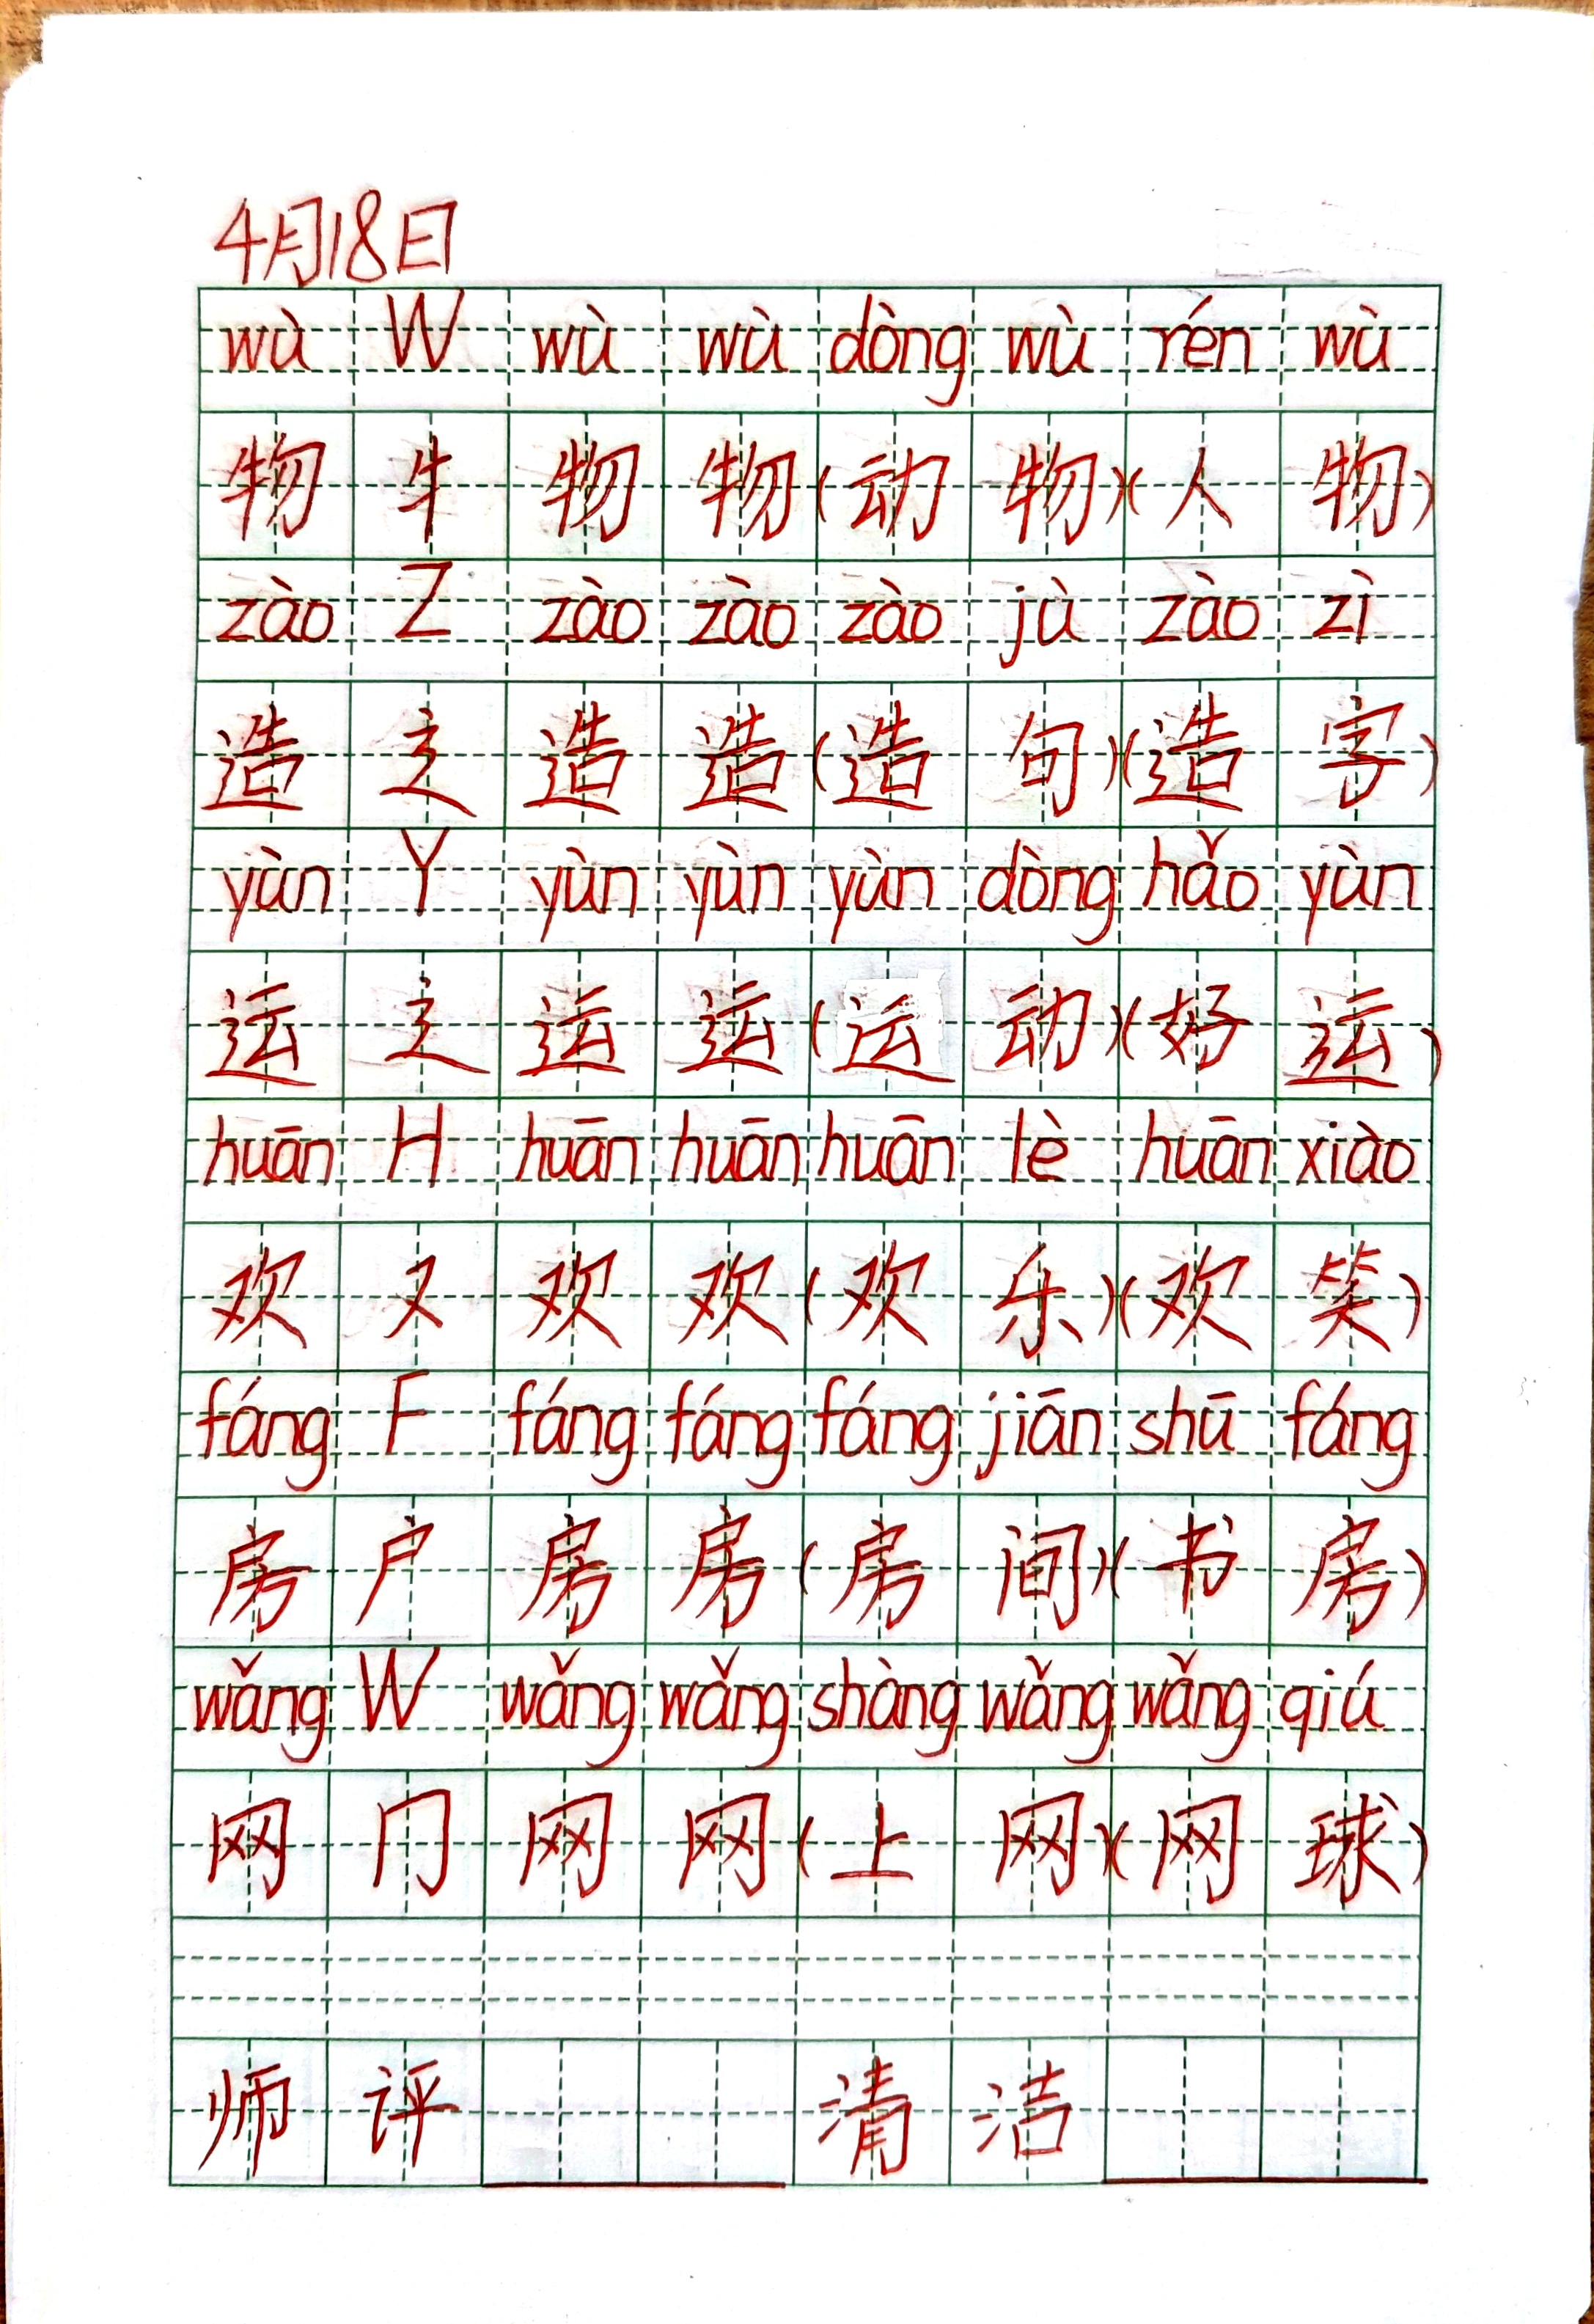 4月18日
wù W wù wù dòng wù rén wù
物 牜 物 物 (动 物)(人 物)
zào Z zào zào zào jù zào zì
造 辶 造 造 (造 句)(造 字)
yùn Y yùn yùn yùn dòng hǎo yùn
运 辶 运 运 (运 动)(好 运)
huān H huān huān huān lè huān xiào
欢 又 欢 欢 (欢 乐)(欢 笑)
fáng F fáng fáng fáng jiān shū fáng
房 户 房 房 (房 间)(书 房)
wǎng W wǎng wǎng shàng wǎng wǎng qiú
网 冂 网 网 (上 网)(网 球)
师 评 清 洁